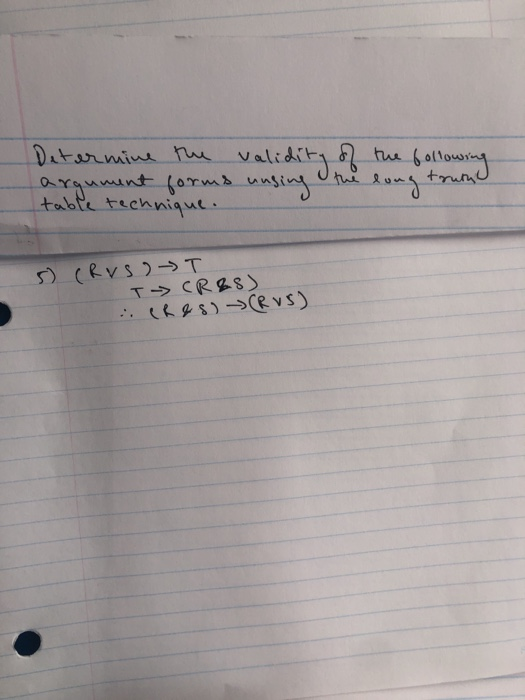 Determine the validity of the following
argument forms unsing the long truth
table technique.
5) (R v S) → T
T → (R & S)
∴ (R & S) → (R v S)